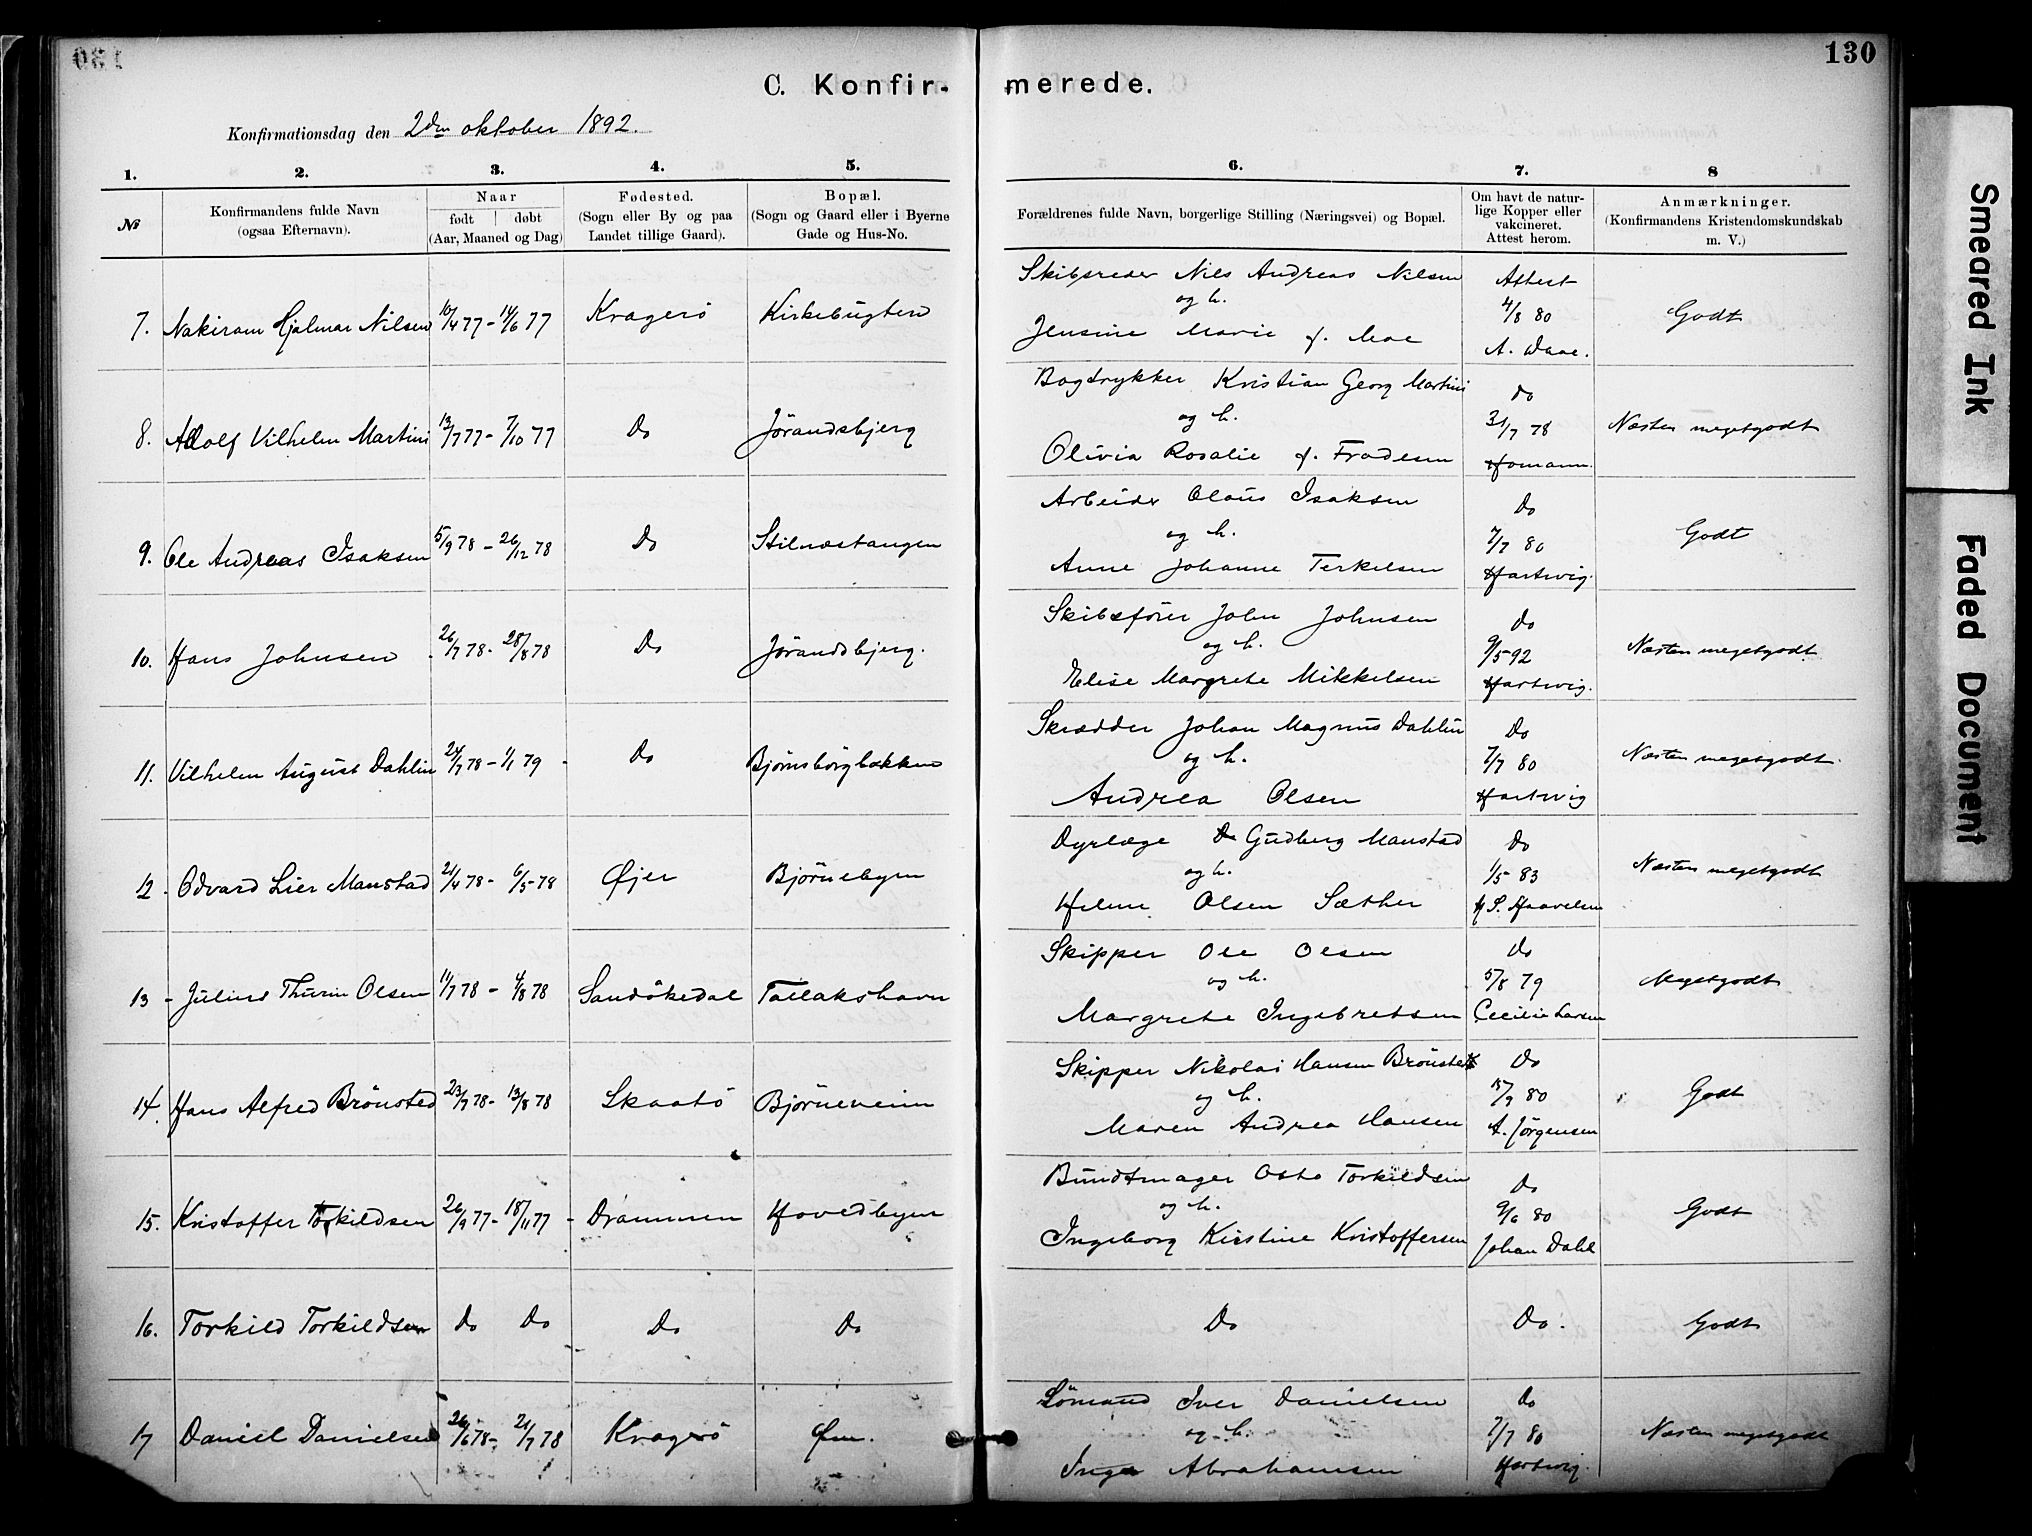 130
C. Konfir-merede.
Konfirmationsdag den 2den oktober 1892.
1. 2. 3. 4. 5. 6. 7. 8
№
Konfirmandens fulde Navn
(ogsaa Efternavn).
Naar
født | døbt
(Aar, Maaned og Dag)
Fødested.
(Sogn eller By og paa
Landet tillige Gaard).
Bopæl.
(Sogn og Gaard eller i Byerne
Gade og Hus-No.
Forældrenes fulde Navn, borgerlige Stilling (Næringsvei) og Bopæl.
Om havt de natur-
lige Kopper eller
vakcineret.
Attest herom.
Anmærkninger.
(Konfirmandens Kristendomskundskab
m. V.)
7. Nakiram Hjalmar Nilsen 10/4 77 - 14/6 77 Kragerö Kirkebugten
Skibsreder Nils Andreas Nilsen
og h.
Jensine Marie f. Moe
Attest
4/8 80
A. Waae.
Godt
8. Adolf Vilhelm Martini 13/7 77 - 7/10 77 Do Jørandsbjerg
Bogtrykker Kristian Georg Martini
og h.
Olivia Rosalie f. Fradesen
do
31/7 78
Homann.
Næsten megetgodt
9. Ole Andreas Isaksen 5/9 78 - 26/12 78 Do Stilnæstangen
Arbeider Olaus Isaksen
og h.
Anne Johanne Terkelsen
Do
7/7 80
Hartvig.
Godt
10. Hans Johnsen 26/7 78 - 28/8 78 Do Jørandsbjerg.
Skibsförer John Johnsen
og h.
Elise Margrete Mikkelsen
do
9/5 92
Hartvig.
Næsten megetgodt
11. Vilhelm August Dahlin 24/7 78 - 1/1 79 - Do Bjørnsborgbakken
Skrædder Johan Magnus Dahlin
og h.
Andrea Olsen
Do
7/7 80
Hartvig
Næsten megetgodt.
12. Odvard Lier Manstad 21/4 78 - 6/5 78 Øjer Bjørnebyen
Dyrlæge Gudberg Manstad
og h.
Helene Olsen Sæther
Do
1/5 83
H S. Haavelsen
Næsten megetgodt
13 - Julius Thurin Olsen 11/7 78 - 4/8 78 Sandökedal Tallakshavn
Skipper Ole Olsen
og h.
Margrete Ingebretsen
do
5/8 79
Cecilie Larsen
Megetgodt
14. Hans Alfred Brönsted 23/7 78 - 13/8 78 Skaatö Bjørneveien
Skipper Nikolai Hansen Brönsted
og h.
Maren Andrea Hansen
Do
15/9 80
A. Jörgensen
Godt
15. Kristoffer Torkildsen 26/9 77 - 18/11 77 - Drammen Hovedbyen
Bundtmager Otto Torkildsen
og h.
Ingeborg Kirstine Kristoffersen
Do
9/6 80
Johan Dahl
Godt
16. Torkild Torkildsen Do Do Do Do
Do
Do.
Godt
17 Daniel Danielsen 26/6 78 - 21/7 78 Kragerö Øen.
Sömand Iver Danielsen
og h.
Inga Abrahamsen
Do
7/7 80
Hartvig.
Næsten megetgodt
Smeared Ink
Faded Document